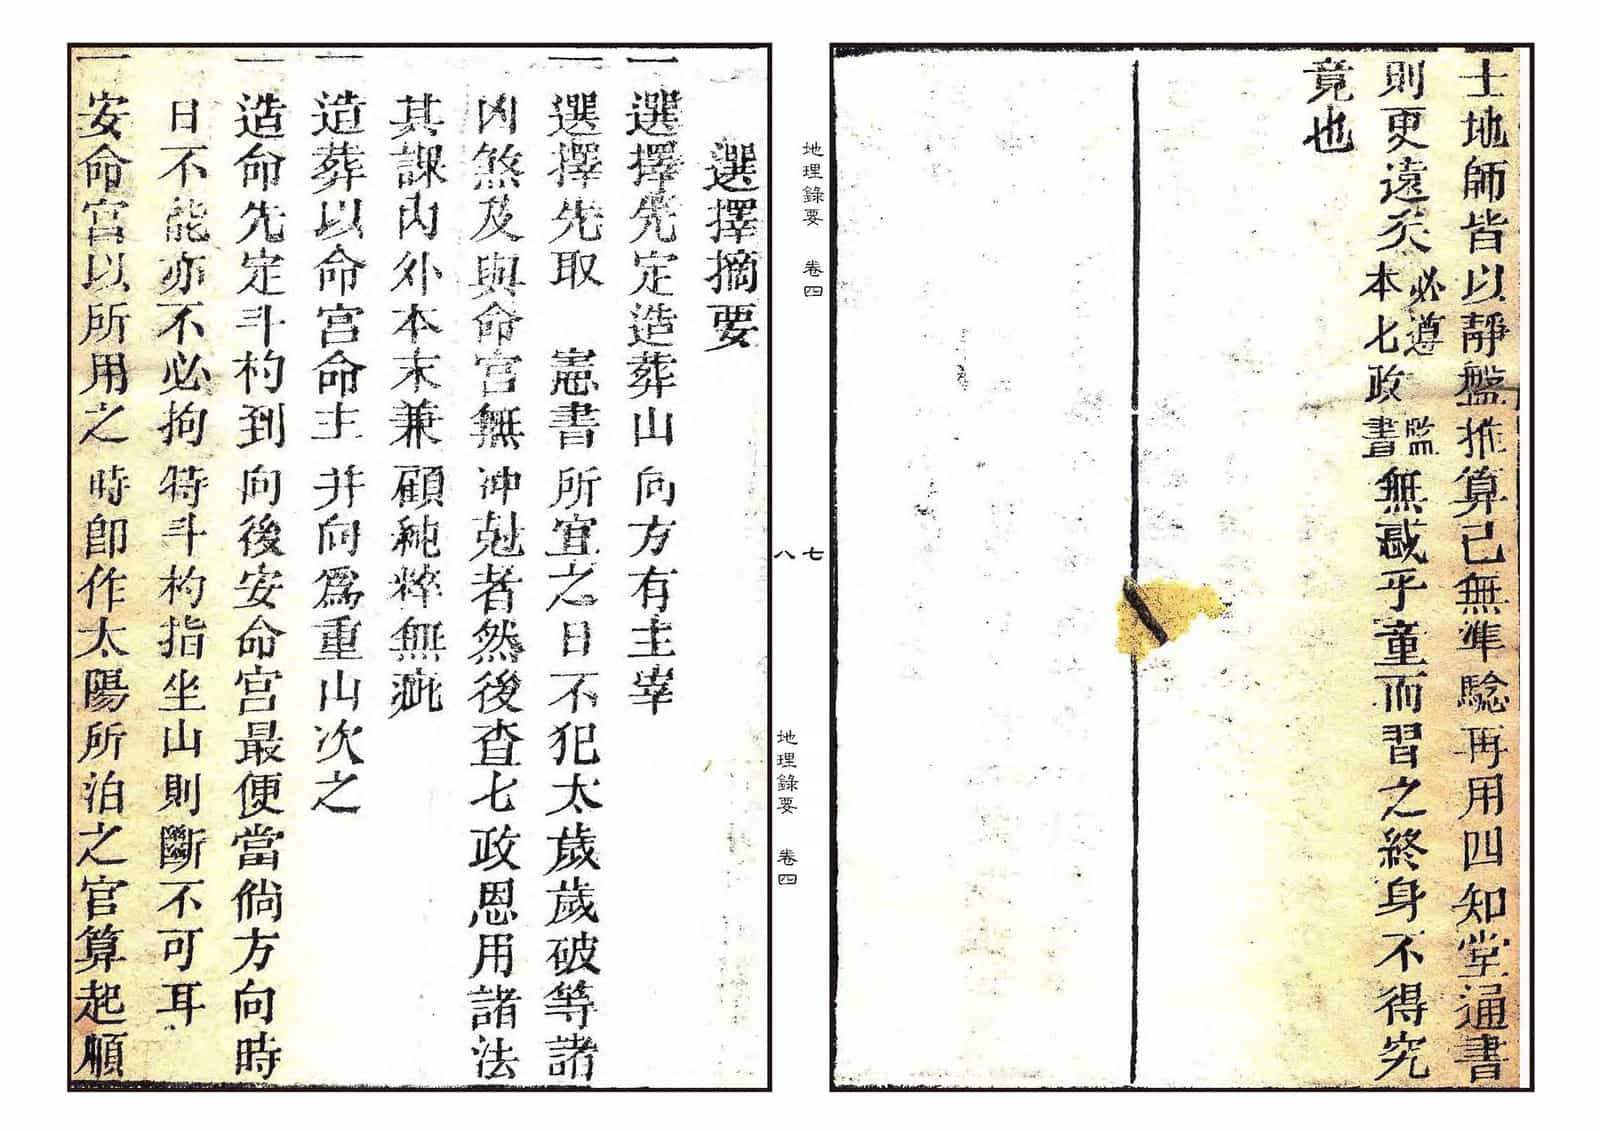 士地師皆以靜盤推算已無準驗再用四知堂通書
則更遠矣必遵監本七政書無惑乎童而習之終身不得究
竟也
地理錄要 卷四
七
八
地理錄要 卷四
選擇摘要
一選擇先定造葬山向方有主宰
一選擇先取 憲書所宜之日不犯太歲歲破等諸
凶煞及與命宮無沖尅者然後查七政恩用諸法
其課內外本末兼顧純粹無疵
一造葬以命宮命主并向爲重山次之
一造命先定斗杓到向後安命宮最便當倘方向時
日不能亦不必拘特斗杓指坐山則斷不可耳
一安命宮以所用之時卽作太陽所泊之宮算起順